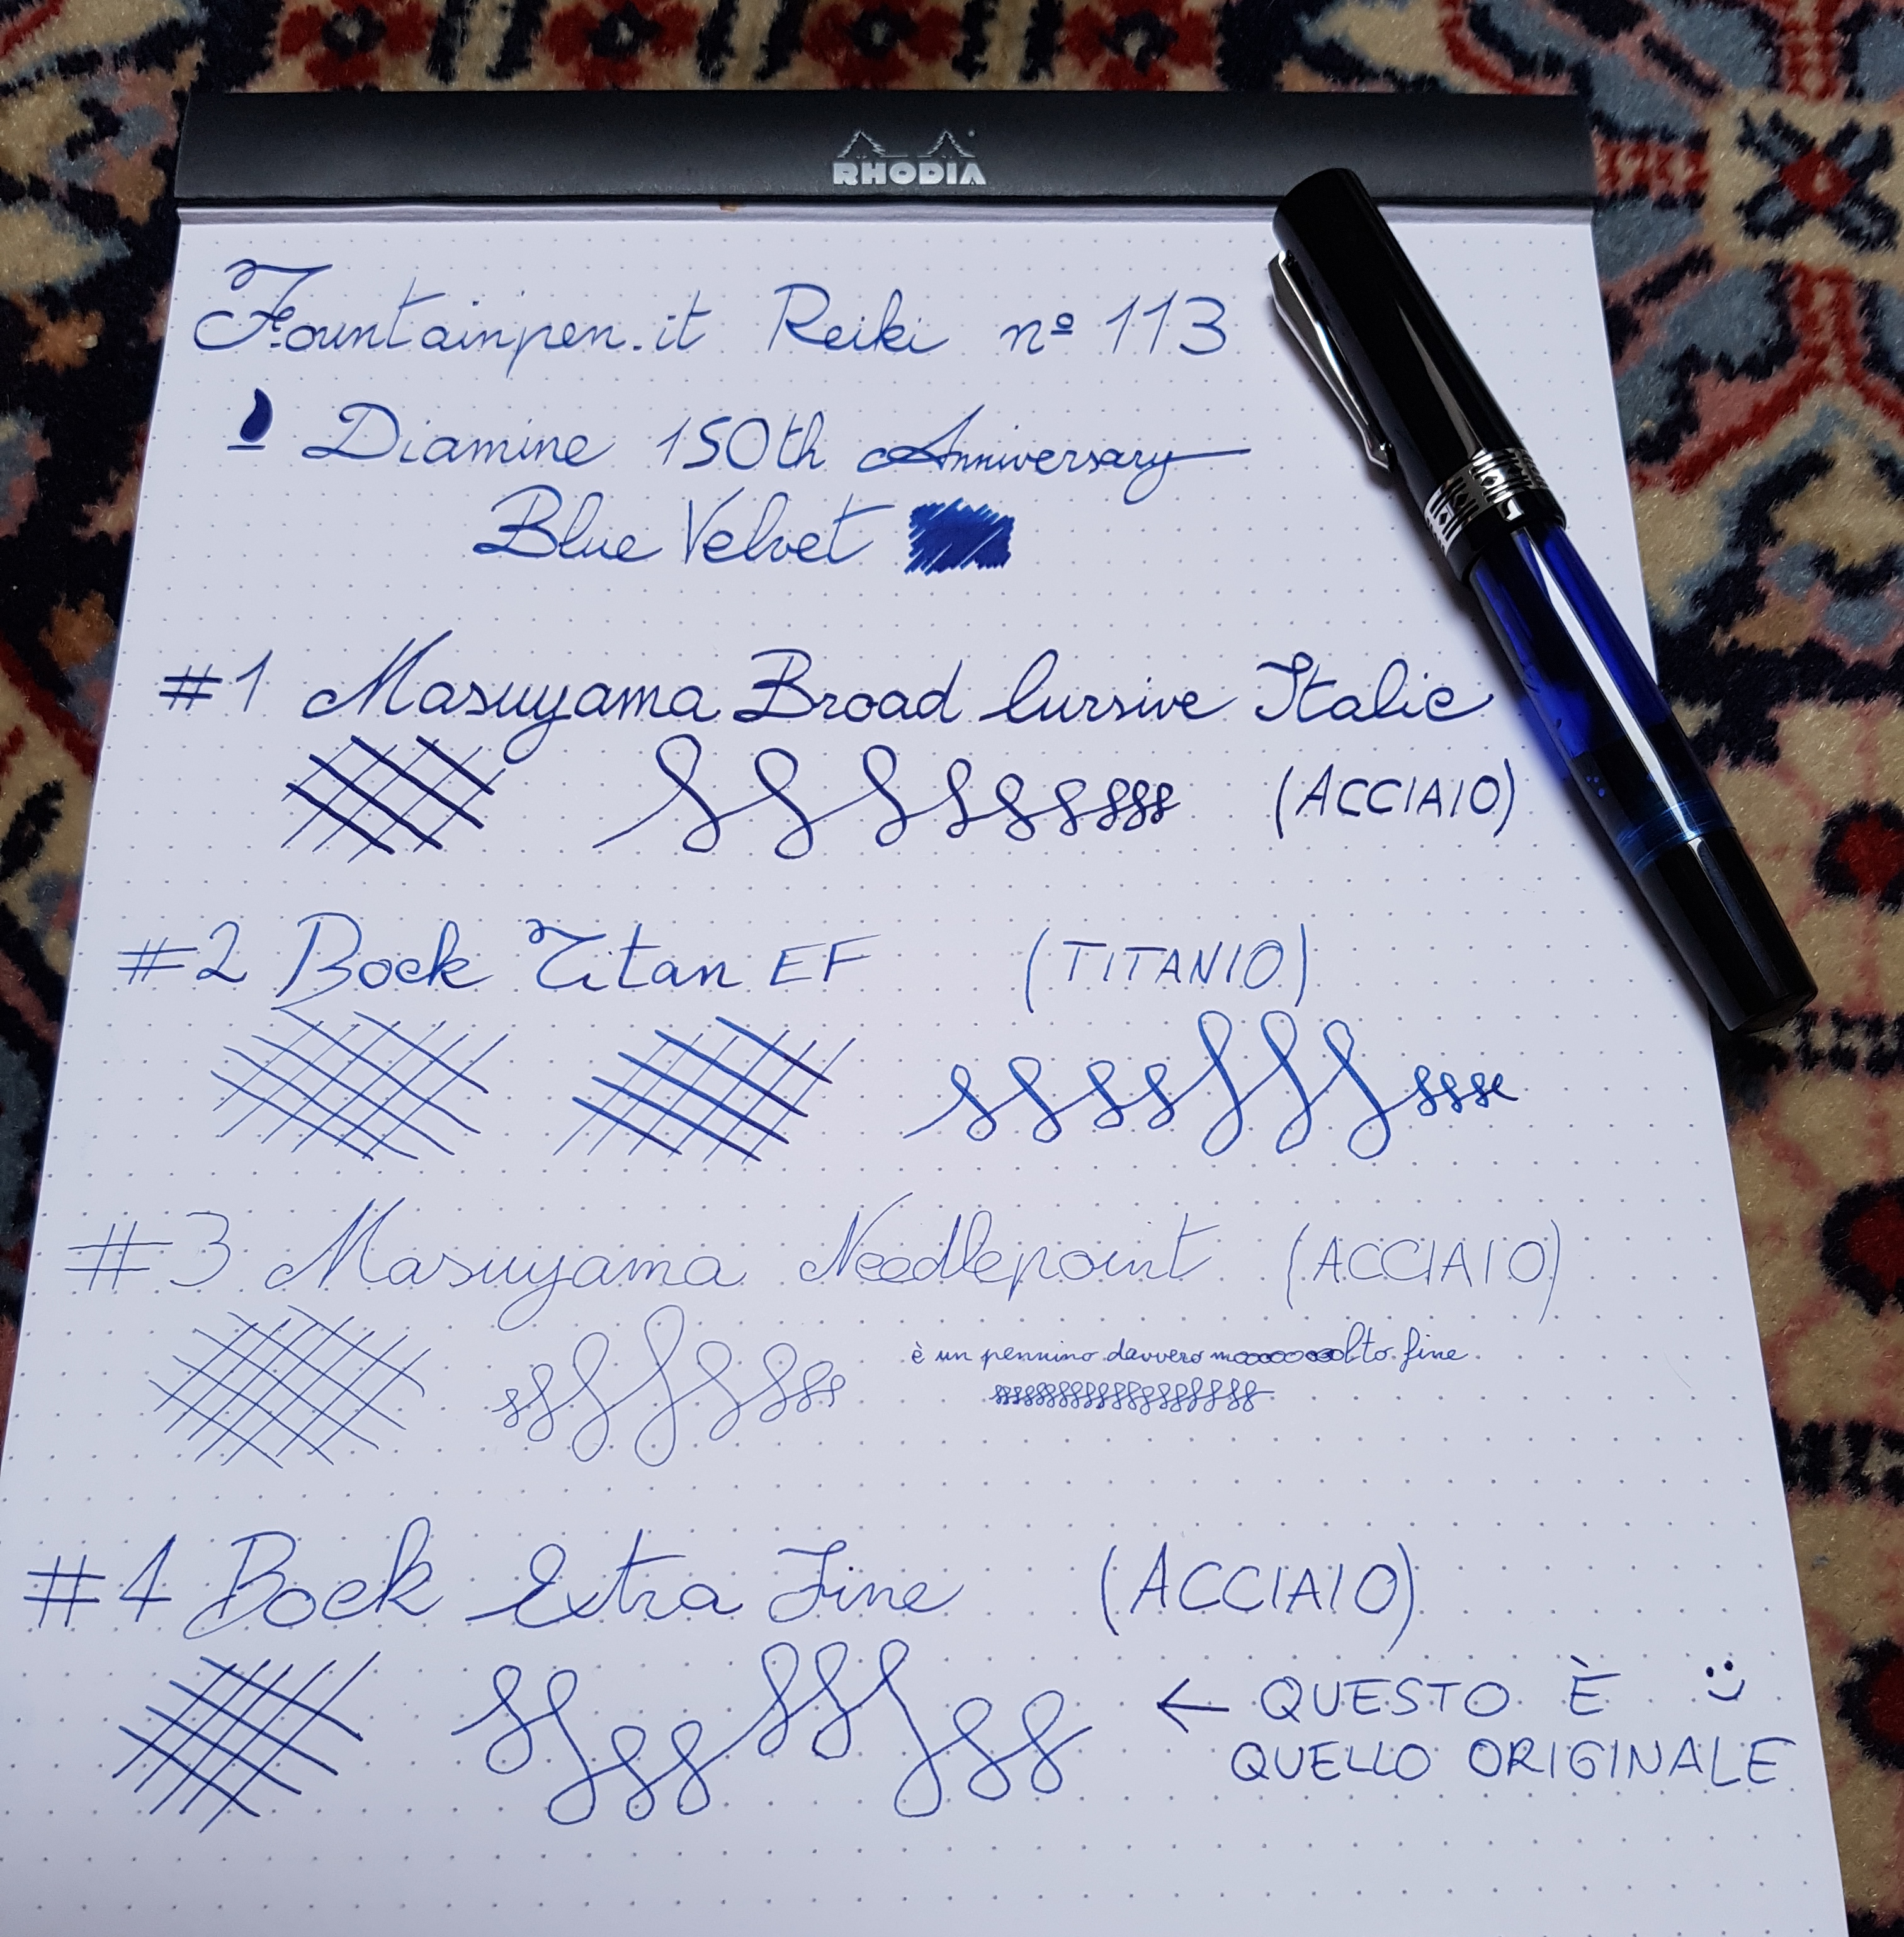 RHODIA
Fountainpen.it Reiki nº 113
Diamine 150th Anniversary
Blue Velvet
#1 Masuyama Broad Cursive Italic
(ACCIAIO)
#2 Bock Titan EF (TITANIO)
#3 Masuyama Needlepoint (ACCIAIO)
è un pennino davvero moooooooolto fine
#4 Bock Extra Fine (ACCIAIO)
← QUESTO È
QUELLO ORIGINALE